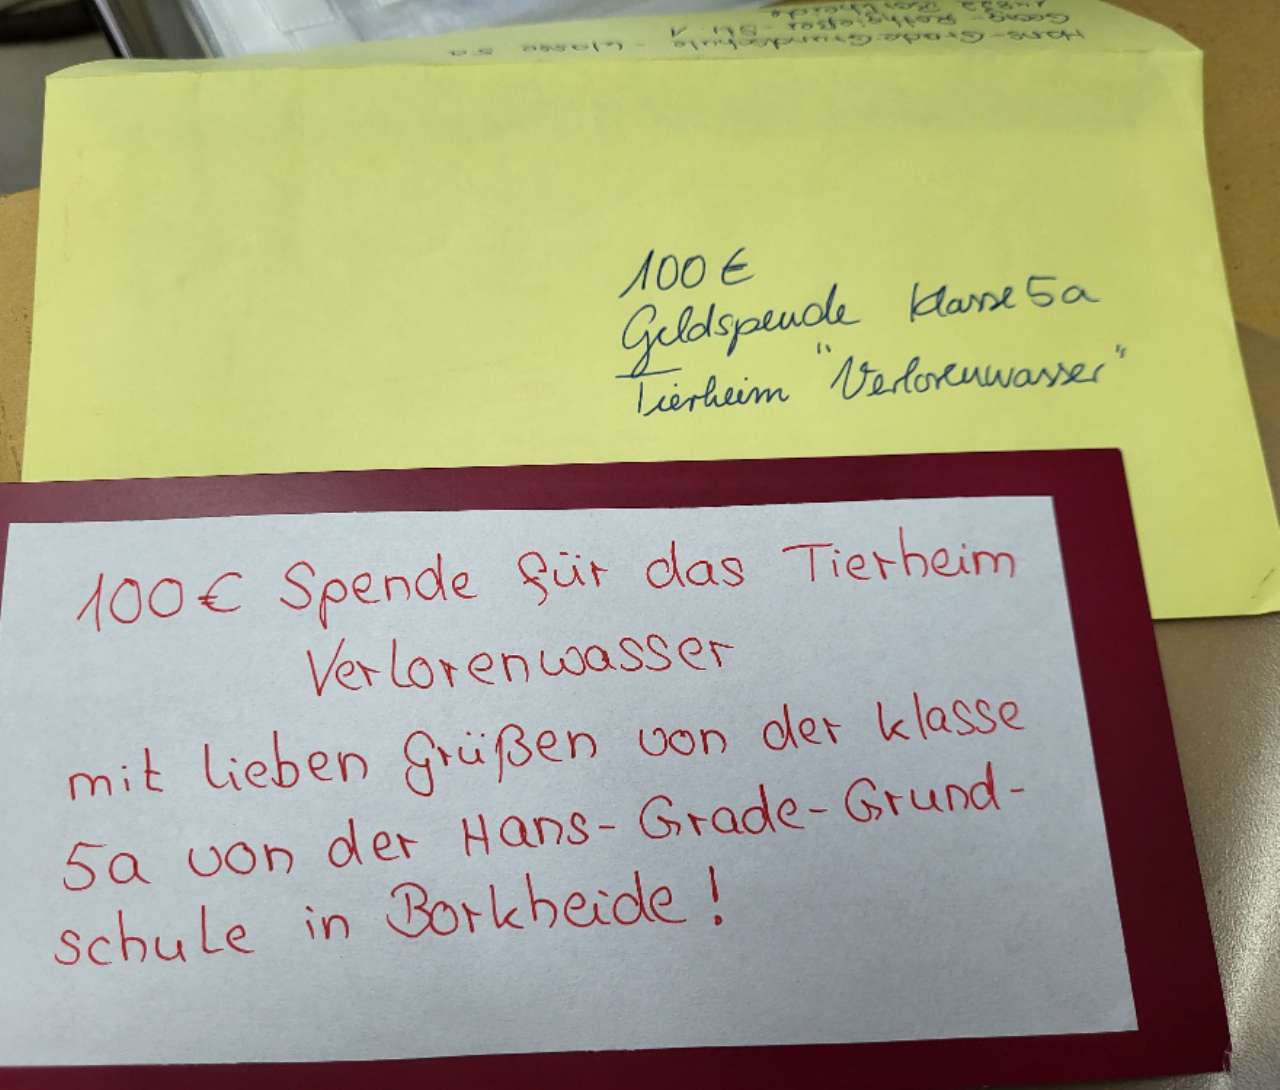 Hans-Grade-Grundschule - Klasse 5a
Georg-Rothgießer-Str. 1
Borkheide
100 €
Geldspende Klasse 5a
Tierheim "Verlorenwasser"
100 € Spende für das Tierheim
Verlorenwasser
mit lieben Grüßen von der Klasse
5a von der Hans-Grade-Grund-
schule in Borkheide!